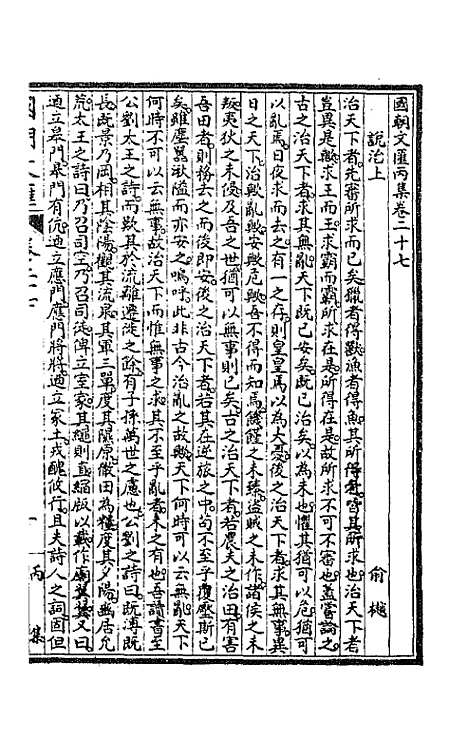 國朝文匯丙集卷二十七
說治上　俞樾
治天下者先審所求而已矣獵者得獸漁者得魚其所得者皆其所求也治天下者
豈異是歟求王而王求霸而霸所求在是所得在是故所求不可不審也蓋嘗論之
古之治天下者求其天下既已安矣既已治矣以為未也懼其猶可以危猶可
以亂焉日夜求而去之有一之存則皇皇焉以為大憂後之治天下者求其無事異
日之天下治歟亂歟安歟危歟吾不得而知焉饑饉之未臻盜賊之未作諸侯之未
叛夷狄之未侵及吾之世猶可以無事則已矣古之治天下者若農夫之治田有害
吾田者則務去之而後即安後之治天下者若其在逆旅之中苟不至乎覆壓斯已
矣雖塵囂湫隘而亦安之嗚呼此非古今治亂之故歟天下何時可以云無事天下
何時不可以云無事故治天下而惟無事之求其不至乎亂者未之有也吾讀書至
公劉太王之詩而歎其於流離遷徙之餘有子孫萬世之慮也公劉之詩曰既溥既
長既景乃岡相其陰陽觀其流泉其軍三單度其隰原徹田為糧度其夕陽豳居允
荒太王之詩曰乃召司空乃召司徒俾立室家其繩則直縮版以載作廟翼翼又曰
迺立皋門皋門有伉迺立應門應門將將迺立冢土戎醜攸行且夫詩人之詞固但
丙　集